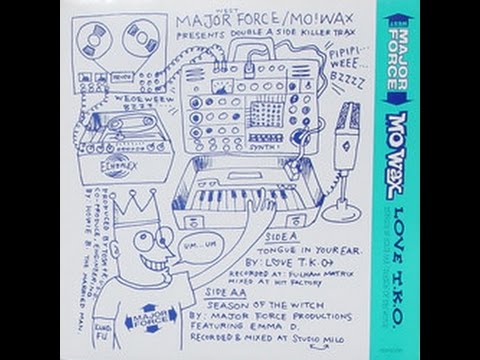 WEST
MAJOR FORCE/MO!WAX
PRESENTS DOUBLE A SIDE KILLER TRAX
PIPIPI...
WEEE...
BZZZZ
WEOEWEEW
BZZT...
ECHOPLEX
SYNTH!
UM...UM
SIDE A
TONGUE IN YOUR EAR.
BY: LOVE T.K.O
RECORDED AT: FULHAM MATRIX
MIXED AT HIT FACTORY
SIDE AA
SEASON OF THE WITCH
BY: MAJOR FORCE PRODUCTIONS
FEATURING EMMA D.
RECORDED & MIXED AT STUDIO MILO
PRODUCED BY TOSH
CO-PRODUCER, ENGINEERING
BY: HOWIE B. THE MARKED MAN
KUNG
FU
MAJOR
FORCE
MAJOR
FORCE
WEST
MO WAX
LOVE T.K.O.